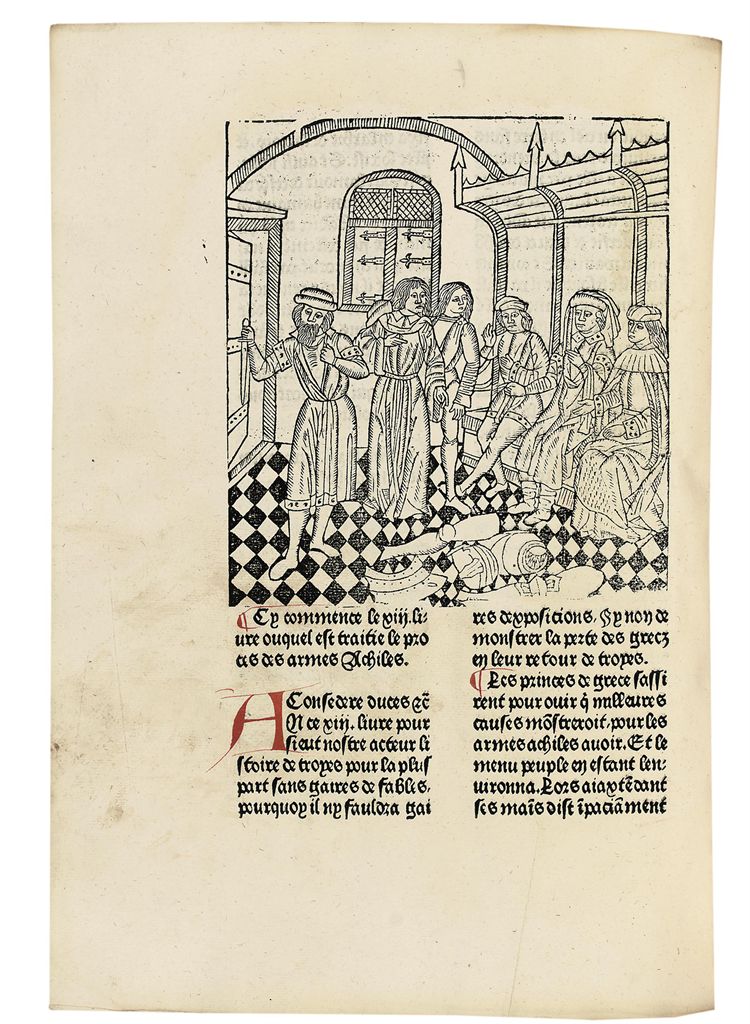 Cy commence le xiij. li-
ure ouquel est traitie le pro
ces des armes Achiles.
AConsedere duces ⁊c̄
En ce xiij. liure pour
sieut nostre acteur li
stoire de troyes pour la plus
part sans gaires de fables.
pourquoy il ny fauldra gai
res dexpositions. Sy non de
monstrer la perte des grecz
en leur retour de troyes.
Les princes de grece sassi
rent pour ouir q̇ milleures
causes mōstreroit. pour les
armes achiles auoir. Et le
menu peuple en estant len-
uironna. Lors aiax tēdant
ses mais dist īpaciāment